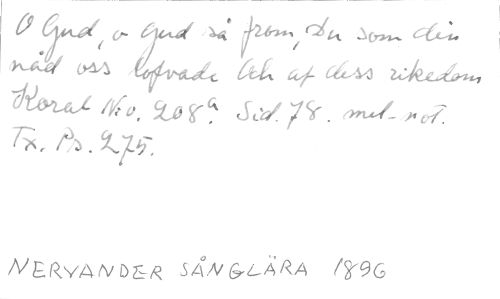 O Gud, o Gud så from, Du som din
nåd oss lofvade Och af dess rikedom
Koral N:o. 208a. Sid. 78. mel-not.
Tx. Ps. 275.
NERVANDER SÅNGLÄRA 1896